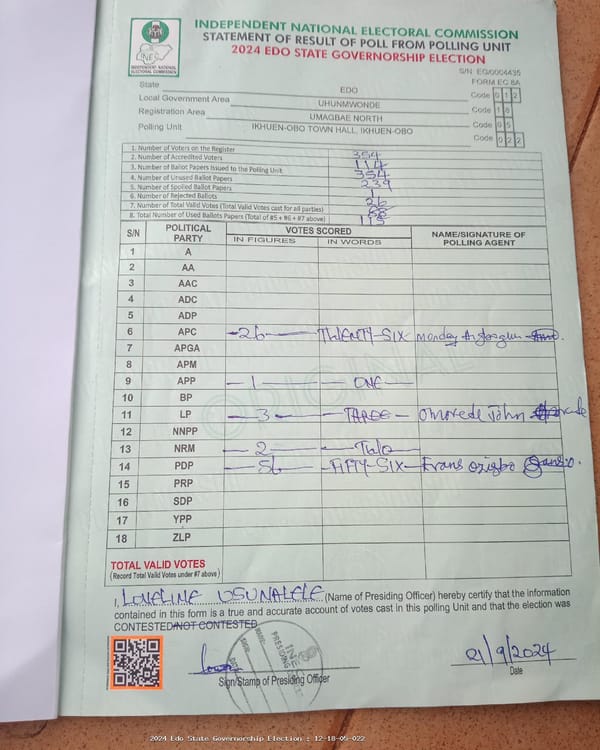 INDEPENDENT NATIONAL ELECTORAL COMMISSION
STATEMENT OF RESULT OF POLL FROM POLLING UNIT
2024 EDO STATE GOVERNORSHIP ELECTION
INEC
INDEPENDENT NATIONAL ELECTORAL COMMISSION
S/N: EG/0004435
FORM EC 8A
State EDO Code 0 1 2
Local Government Area UHUNMWONDE Code 1 8
Registration Area UMAGBAE NORTH Code 0 5
Polling Unit IKHUEN-OBO TOWN HALL, IKHUEN-OBO Code 0 2 2
1. Number of Voters on the Register 354
2. Number of Accredited Voters 114
3. Number of Ballot Papers Issued to the Polling Unit 354
4. Number of Unused Ballot Papers 239
5. Number of Spoiled Ballot Papers 1
6. Number of Rejected Ballots 26
7. Number of Total Valid Votes (Total Valid Votes cast for all parties) 88
8. Total Number of Used Ballots Papers (Total of #5 + #6 + #7 above) 115
S/N POLITICAL PARTY VOTES SCORED NAME/SIGNATURE OF POLLING AGENT
IN FIGURES IN WORDS
1 A
2 AA
3 AAC
4 ADC
5 ADP
6 APC -26- TWENTY-SIX Monday
7 APGA
8 APM
9 APP -1- ONE
10 BP
11 LP -3- THREE - John
12 NNPP
13 NRM -2- TWO
14 PDP -56- FIFTY-SIX Evans
15 PRP
16 SDP
17 YPP
18 ZLP
ORIGINAL
TOTAL VALID VOTES
(Record Total Valid Votes under #7 above)
I, (Name of Presiding Officer) hereby certify that the information
contained in this form is a true and accurate account of votes cast in this polling Unit and that the election was
CONTESTED/NOT CONTESTED
INEC
PRESIDING
21/9/2024
Sign/Stamp of Presiding Officer Date
2024 Edo State Governorship Election : 12-18-05-022